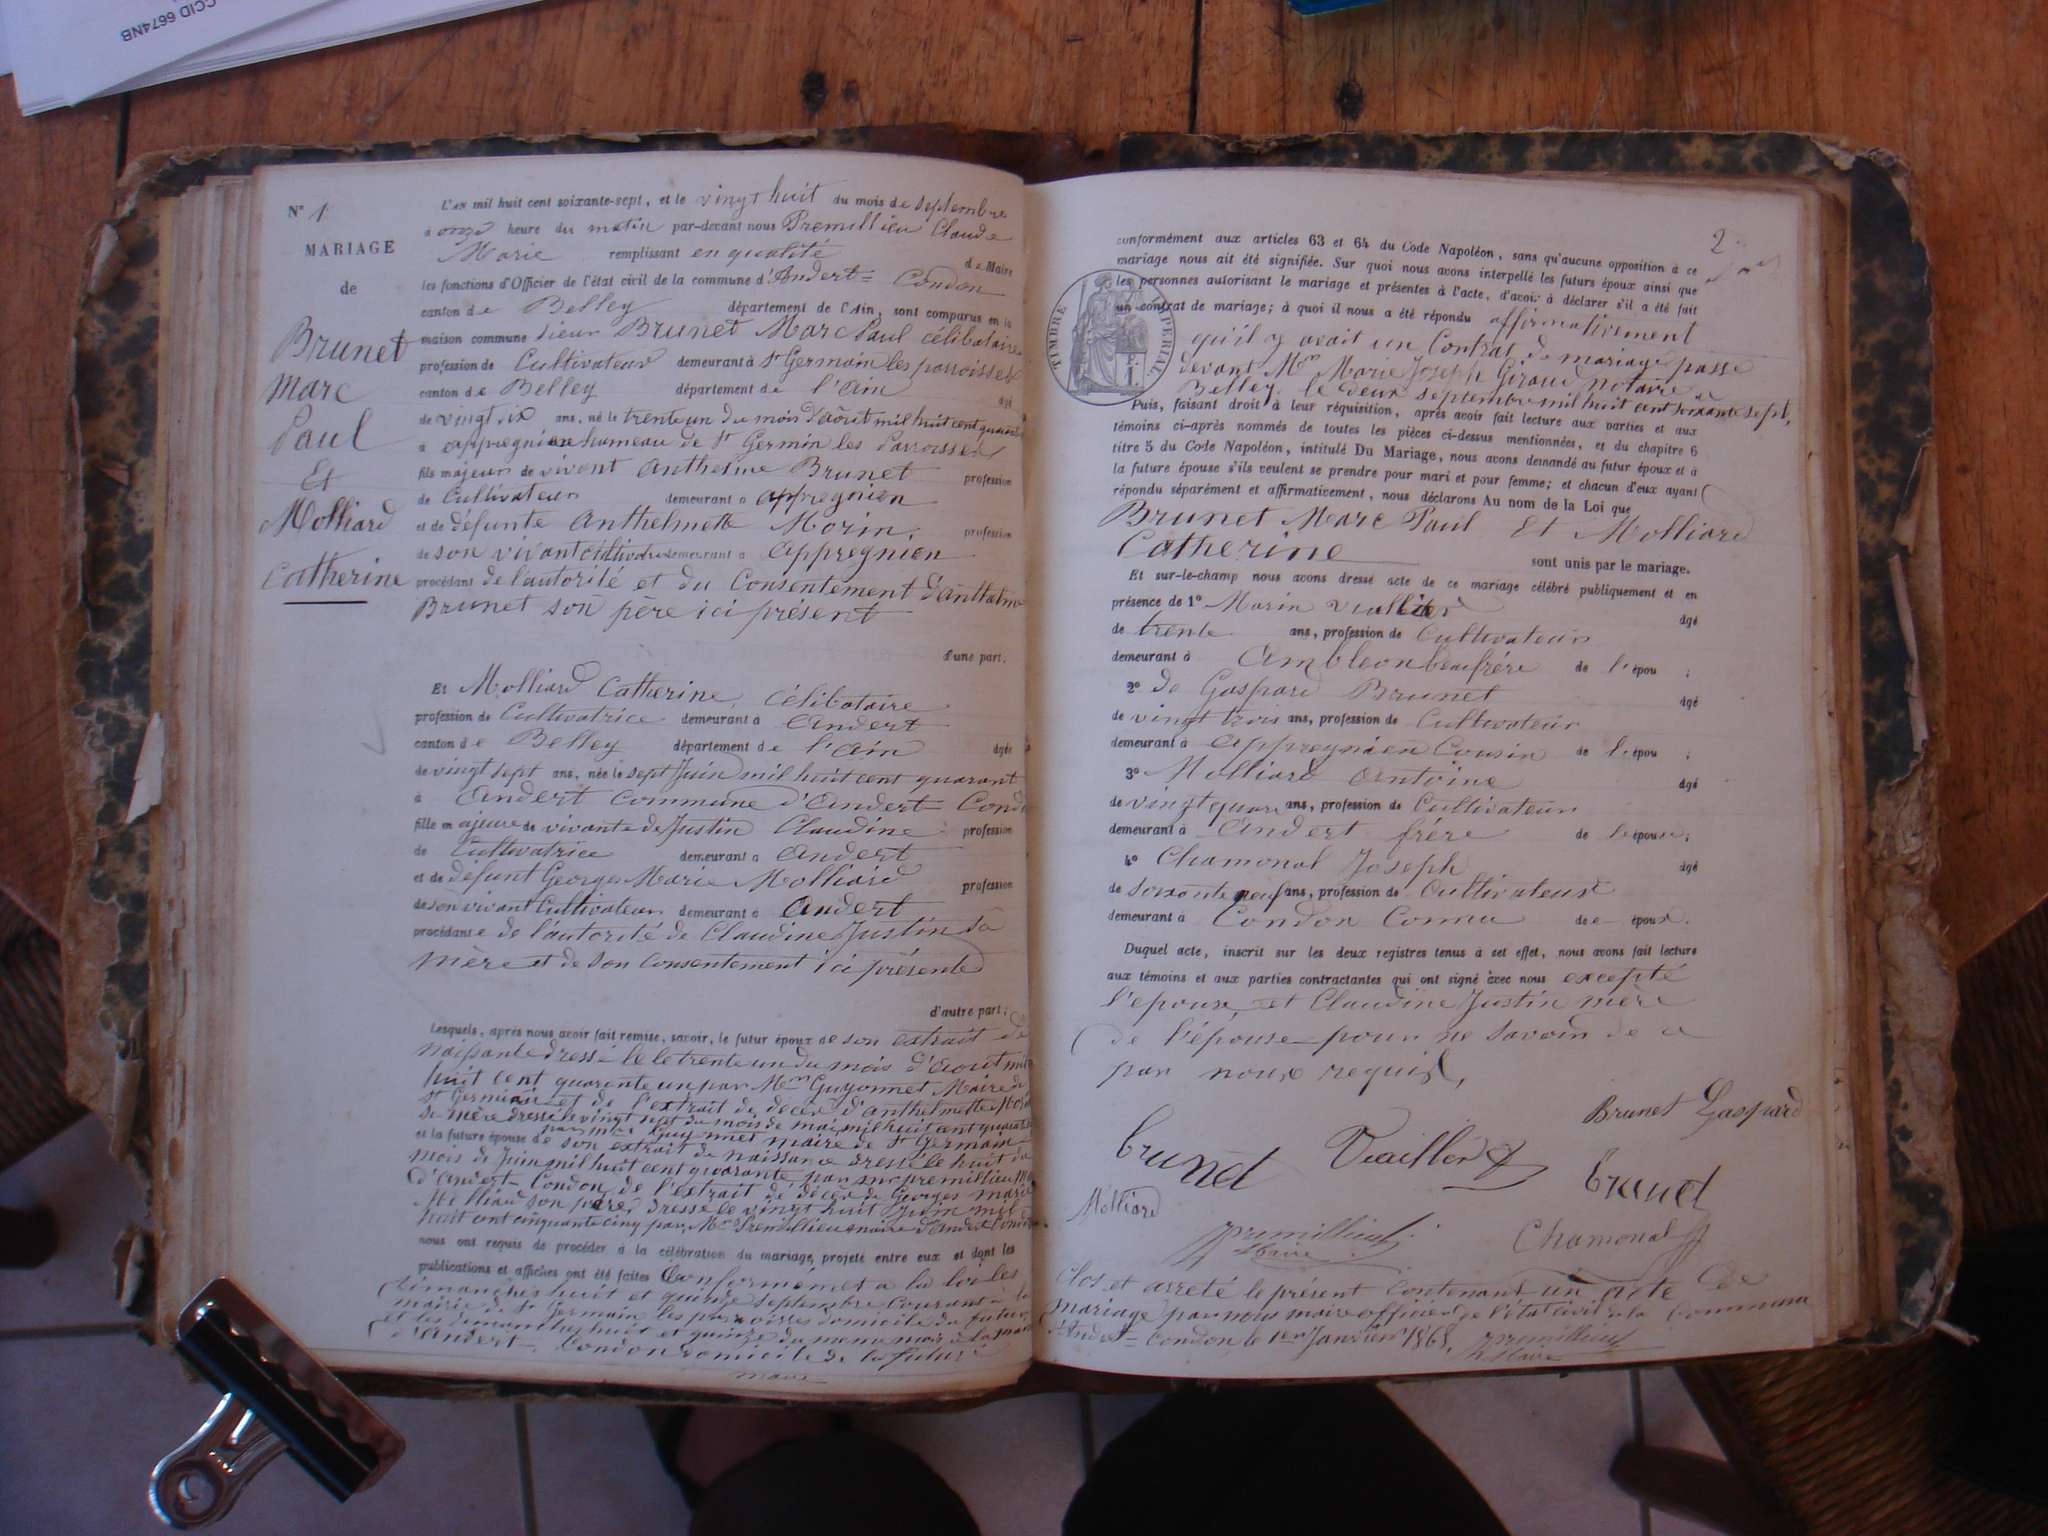 CCID 6674NB
N° 1
MARIAGE
de
Brunet
Marc
Paul
Et
Molliard
Catherine
L'AN mil huit cent soixante-sept, et le vingt huit du mois de septembre
à onze heure du matin par-devant nous Premillieu Claude
Marie remplissant en qualité de Maire
les fonctions d'Officier de l'état civil de la commune d'Andert= Condon
canton de Belley département de l'Ain, sont comparus en la
maison commune sieur Brunet Marc Paul célibataire
profession de Cultivateur demeurant à St Germain les parroisses
canton de Belley département de l'ain âgé
de vingt six ans, né le trente un du mois d'aôut mil huit cent quarante
à appregnien hameau de St Germin les Parroisses
fils majeur de vivant Anthelme Brunet profession
de Cultivateur demeurant à appregnien
et de défunte Anthelmette Morin, profession
de son vivant cultivatrice demeurant à appregnien
procédant de l'autorité et du Consentement d'Anthelme
Brunet son père ici présent
d'une part.
Et Molliard Catherine, Célibataire
profession de Cultivatrice demeurant à Andert
canton de Belley département de l'ain âgée
de vingt sept ans, née le sept Juin mil huit cent quarant
à Andert Commune d'Andert= Cond
fille majeure de vivante de Justin Claudine profession
de Cultivatrice demeurant à Andert
et de défunt Georges Marie Molliard profession
de son vivant Cultivateur demeurant à Andert
procédante de l'autorité de Claudine Justin sa
mère et de son Consentement ici présente
d'autre part;
Lesquels, après nous avoir fait remise, savoir, le futur époux de son extrait de
naissante dressé le le trente un du mois d'aout mil
huit cent quarente un par Mr Guyonnet Maire de
St Germain et de l'extrait de décèr d'anthelmette Morin
sa mère dressé le vingt sept du mois de mai mil huit cent quarante
par Mr Guyonnet maire de St Germain
et la future épouse de son extrait de naissance dressé le huit du
mois de Juin mil huit cent quarante par mr premillieu M
d'Andert= Condon de l'extrait de décèr de Georges marie
Molliard son père, dressé le vingt huit Juin mil
huit cent cinquante cinq par Mr Premillieu maire d'Andert Condon
nous ont requis de procéder à la célébration du mariage projeté entre eux et dont les
publications et affiches ont été faites Conformémet a la loi les
dimanches huit et quinze septembre Courant à la
mairie de St Germain les parroisses domicile du futur
et les dimanches huit et quinze du meme mois à la mairie
d'Andert= Condon domicile de la future
2
TIMBRE IMPERIAL
conformément aux articles 63 et 64 du Code Napoléon, sans qu'aucune opposition à ce
mariage nous ait été signifiée. Sur quoi nous avons interpellé les futurs époux ainsi que
les personnes autorisant le mariage et présentes à l'acte, d'avoir à déclarer s'il a été fait
un contrat de mariage; à quoi il nous a été répondu affirmativement
qu'il y avait un Contrat de mariage passé
devant Mr Marie Joseph Giraud notaire
Belley le deux septembre mil huit cent soixante sept.
Puis, faisant droit à leur réquisition, après avoir fait lecture aux parties et aux
témoins ci-après nommés de toutes les pièces ci-dessus mentionnées, et du chapitre 6
titre 5 du Code Napoléon, intitulé Du Mariage, nous avons demandé au futur époux et à
la future épouse s'ils veulent se prendre pour mari et pour femme; et chacun d'eux ayant
répondu séparément et affirmativement, nous déclarons Au nom de la Loi que
Brunet Marc Paul Et Molliard
Catherine sont unis par le mariage.
Et sur-le-champ nous avons dressé acte de ce mariage célébré publiquement et en
présence de 1° Marin âgé
de trente ans, profession de Cultivateur
demeurant à Ambleon beaufrére de l'épou ;
2° de Gaspard Brunet âgé
de vingt trois ans, profession de Cultivateur
demeurant à appregnien Cousin de l'épou ;
3° Molliard Antoine âgé
de vingt quare ans, profession de Cultivateur
demeurant à Andert frére de l'épouse;
4° Chamonal Joseph âgé
de soixante neuf ans, profession de Cultivateur
demeurant à Condon Connu de e époux.
Duquel acte, inscrit sur les deux registres tenus à cet effet, nous avons fait lecture
aux témoins et aux parties contractantes qui ont signé avec nous excepté
l'epouse et Claudine Justin mère
de l'épouse pour ne savoir de ce
par nous requis,
Brunet Gaspard
Brunet
Brunet
Molliard
Premillieu
Maire
Chamonal J
Clos et arreté le présent Contenant un acte de
mariage par nous maire officier de l'état civil de la Commune
d'Andert= Condon le 1er Janvier 1868,
Premillieu
Maire